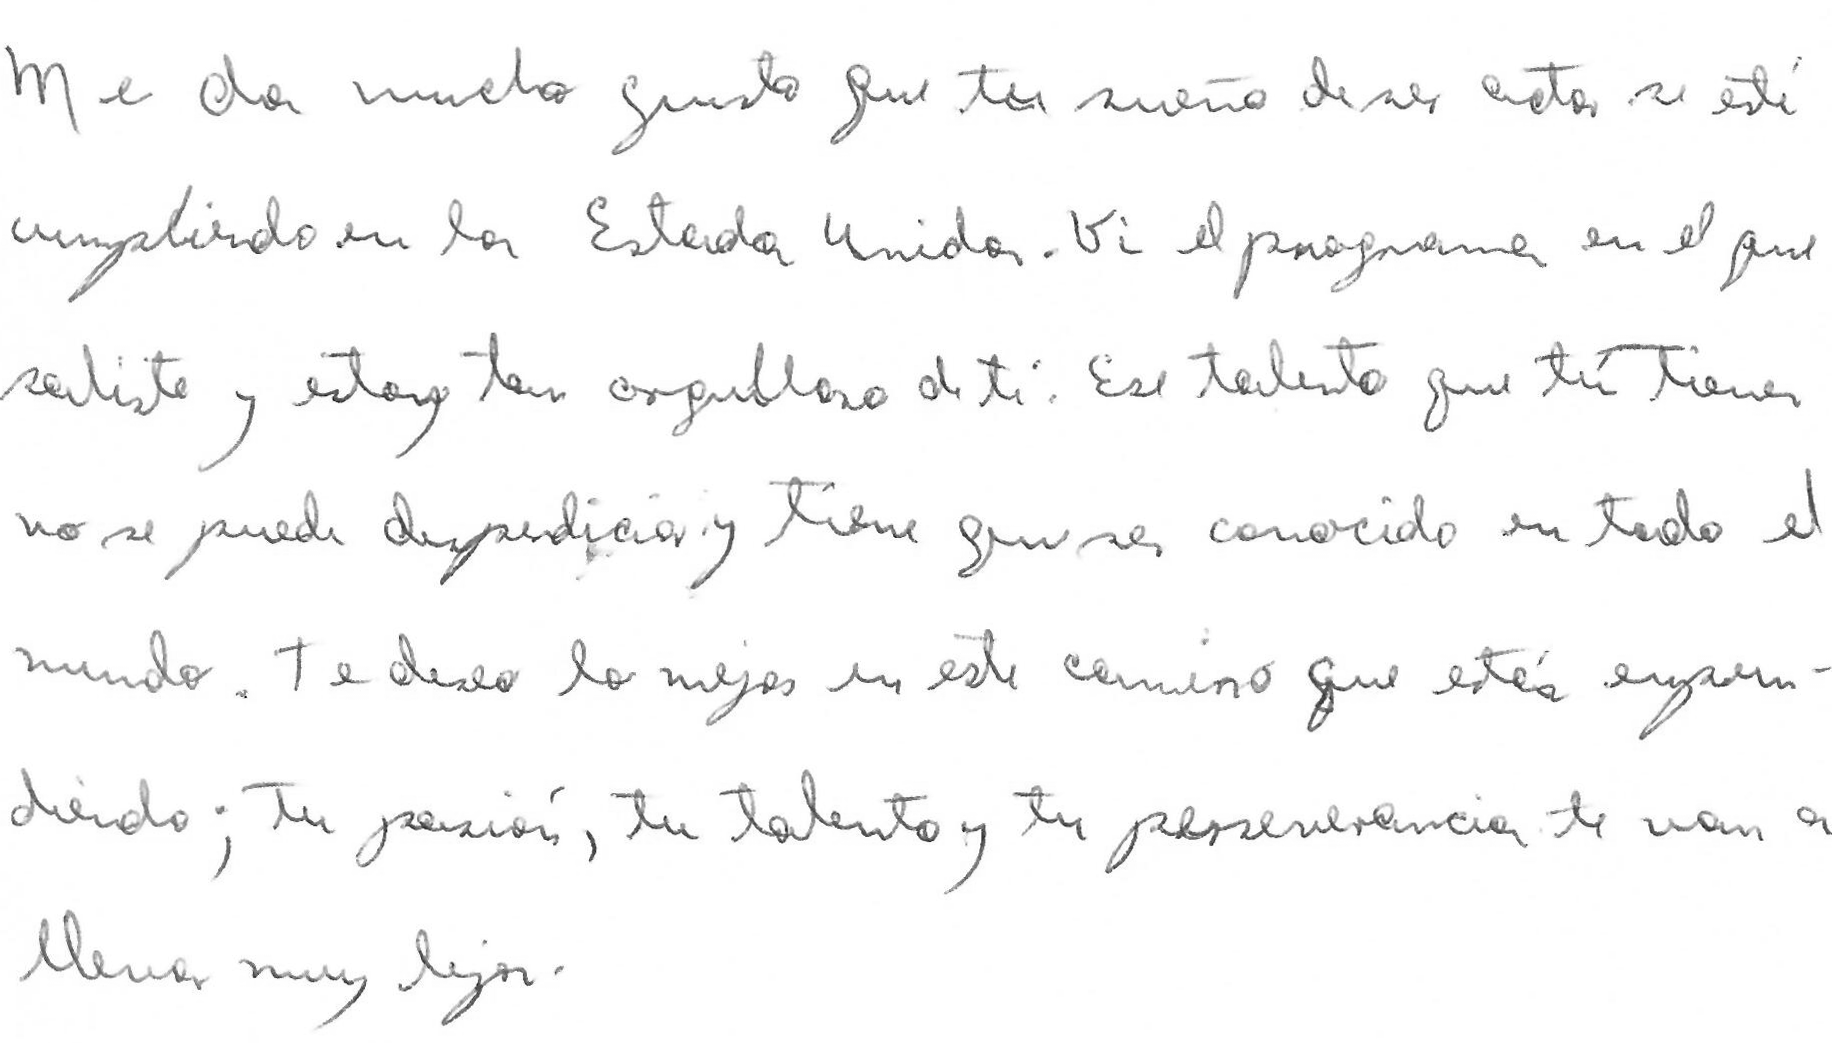 Me da mucho gusto que tu sueño de ser actor se esté
cumpliendo en los Estados Unidos. Vi el programa en el que
saliste y estoy tan orgulloso de ti. Ese talento que tú tienes
no se puede desperdiciar y tiene que ser conocido en todo el
mundo. Te deseo lo mejor en este camino que estás empren-
diendo; tu pasión, tu talento y tu perseverancia te van a
llevar muy lejos.